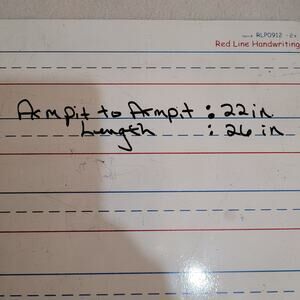 Item# RLP0912 - 2x
Red Line Handwriting
Armpit to Armpit : 22in
Length : 26 in